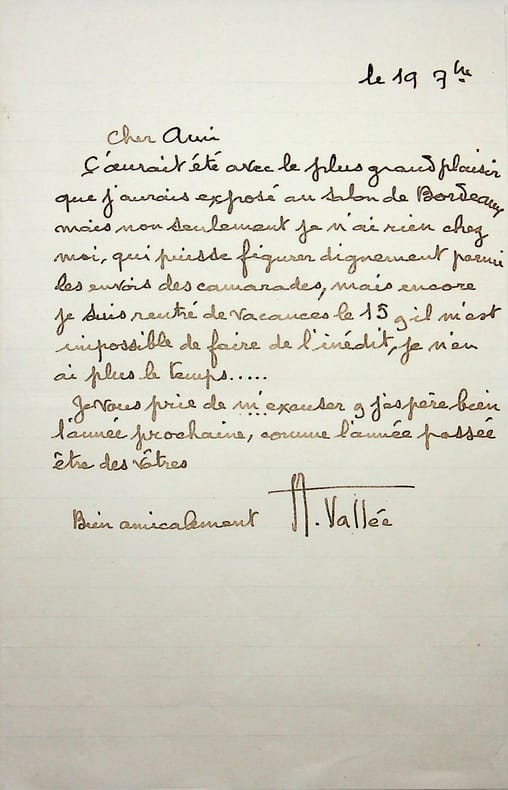 le 19 7bre
Cher Ami
Ç'aurait été avec le plus grand plaisir
que j'aurais exposé au salon de Bordeaux
mais non seulement je n'ai rien chez
moi, qui puisse figurer dignement parmi
les envois des camarades, mais encore
je suis rentré de vacances le 15 & il m'est
impossible de faire de l'inédit, je n'en
ai plus le temps.....
Je vous prie de m'excuser & j'espère bien
l'année prochaine, comme l'année passée
être des vôtres
Bien amicalement A. Vallée